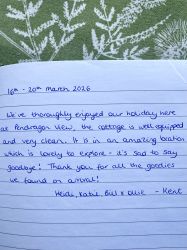 16th - 20th March 2026
We've thoroughly enjoyed our holiday here
at Pendragon View, the cottage is well equipped
and very clean. It is in an amazing location
which is lovely to explore - it's sad to say
goodbye! Thank you for all the goodies
we found on arrival!
Heidi, Katie, Bill & Ollie - Kent